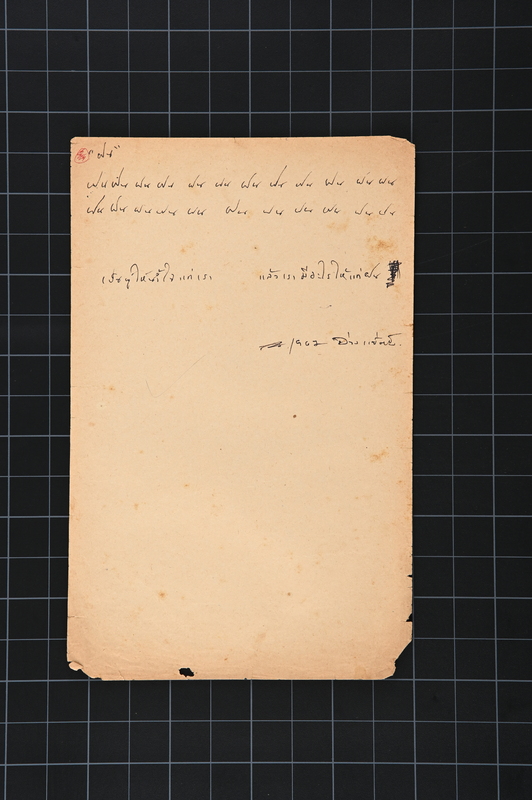 "ฝน"
ฝน ฝน ฝน ฝน ฝน ฝน ฝน ฝน ฝน ฝน ฝน ฝน
ฝน ฝน ฝน ฝน ฝน ฝน ฝน ฝน ฝน ฝน ฝน
ให้น้ำใจแก่เรา แล้วเรามีอะไรให้แก่ฝน
จ่าง แซ่ตั้ง.